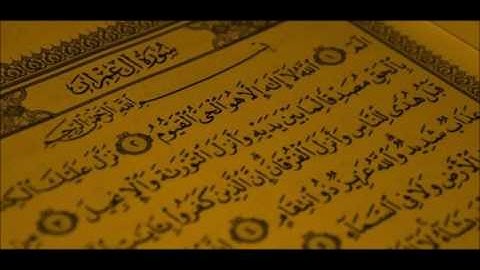 سُورَةُ آلِ عِمْرَانَ
بِسْمِ اللَّهِ الرَّحْمَٰنِ الرَّحِيمِ
الٓمٓ ١ اللَّهُ لَا إِلَٰهَ إِلَّا هُوَ الْحَيُّ الْقَيُّومُ ٢ نَزَّلَ عَلَيْكَ
بِالْحَقِّ مُصَدِّقًا لِّمَا بَيْنَ يَدَيْهِ وَأَنزَلَ التَّوْرَىٰةَ وَالْإِنجِيلَ ٣
قَبْلُ هُدًى لِّلنَّاسِ وَأَنزَلَ الْفُرْقَانَ إِنَّ الَّذِينَ كَفَرُوا
عَذَابٌ شَدِيدٌ وَاللَّهُ عَزِيزٌ ذُو انتِقَامٍ ٤
الْأَرْضِ وَلَا فِي السَّمَاءِ ٥